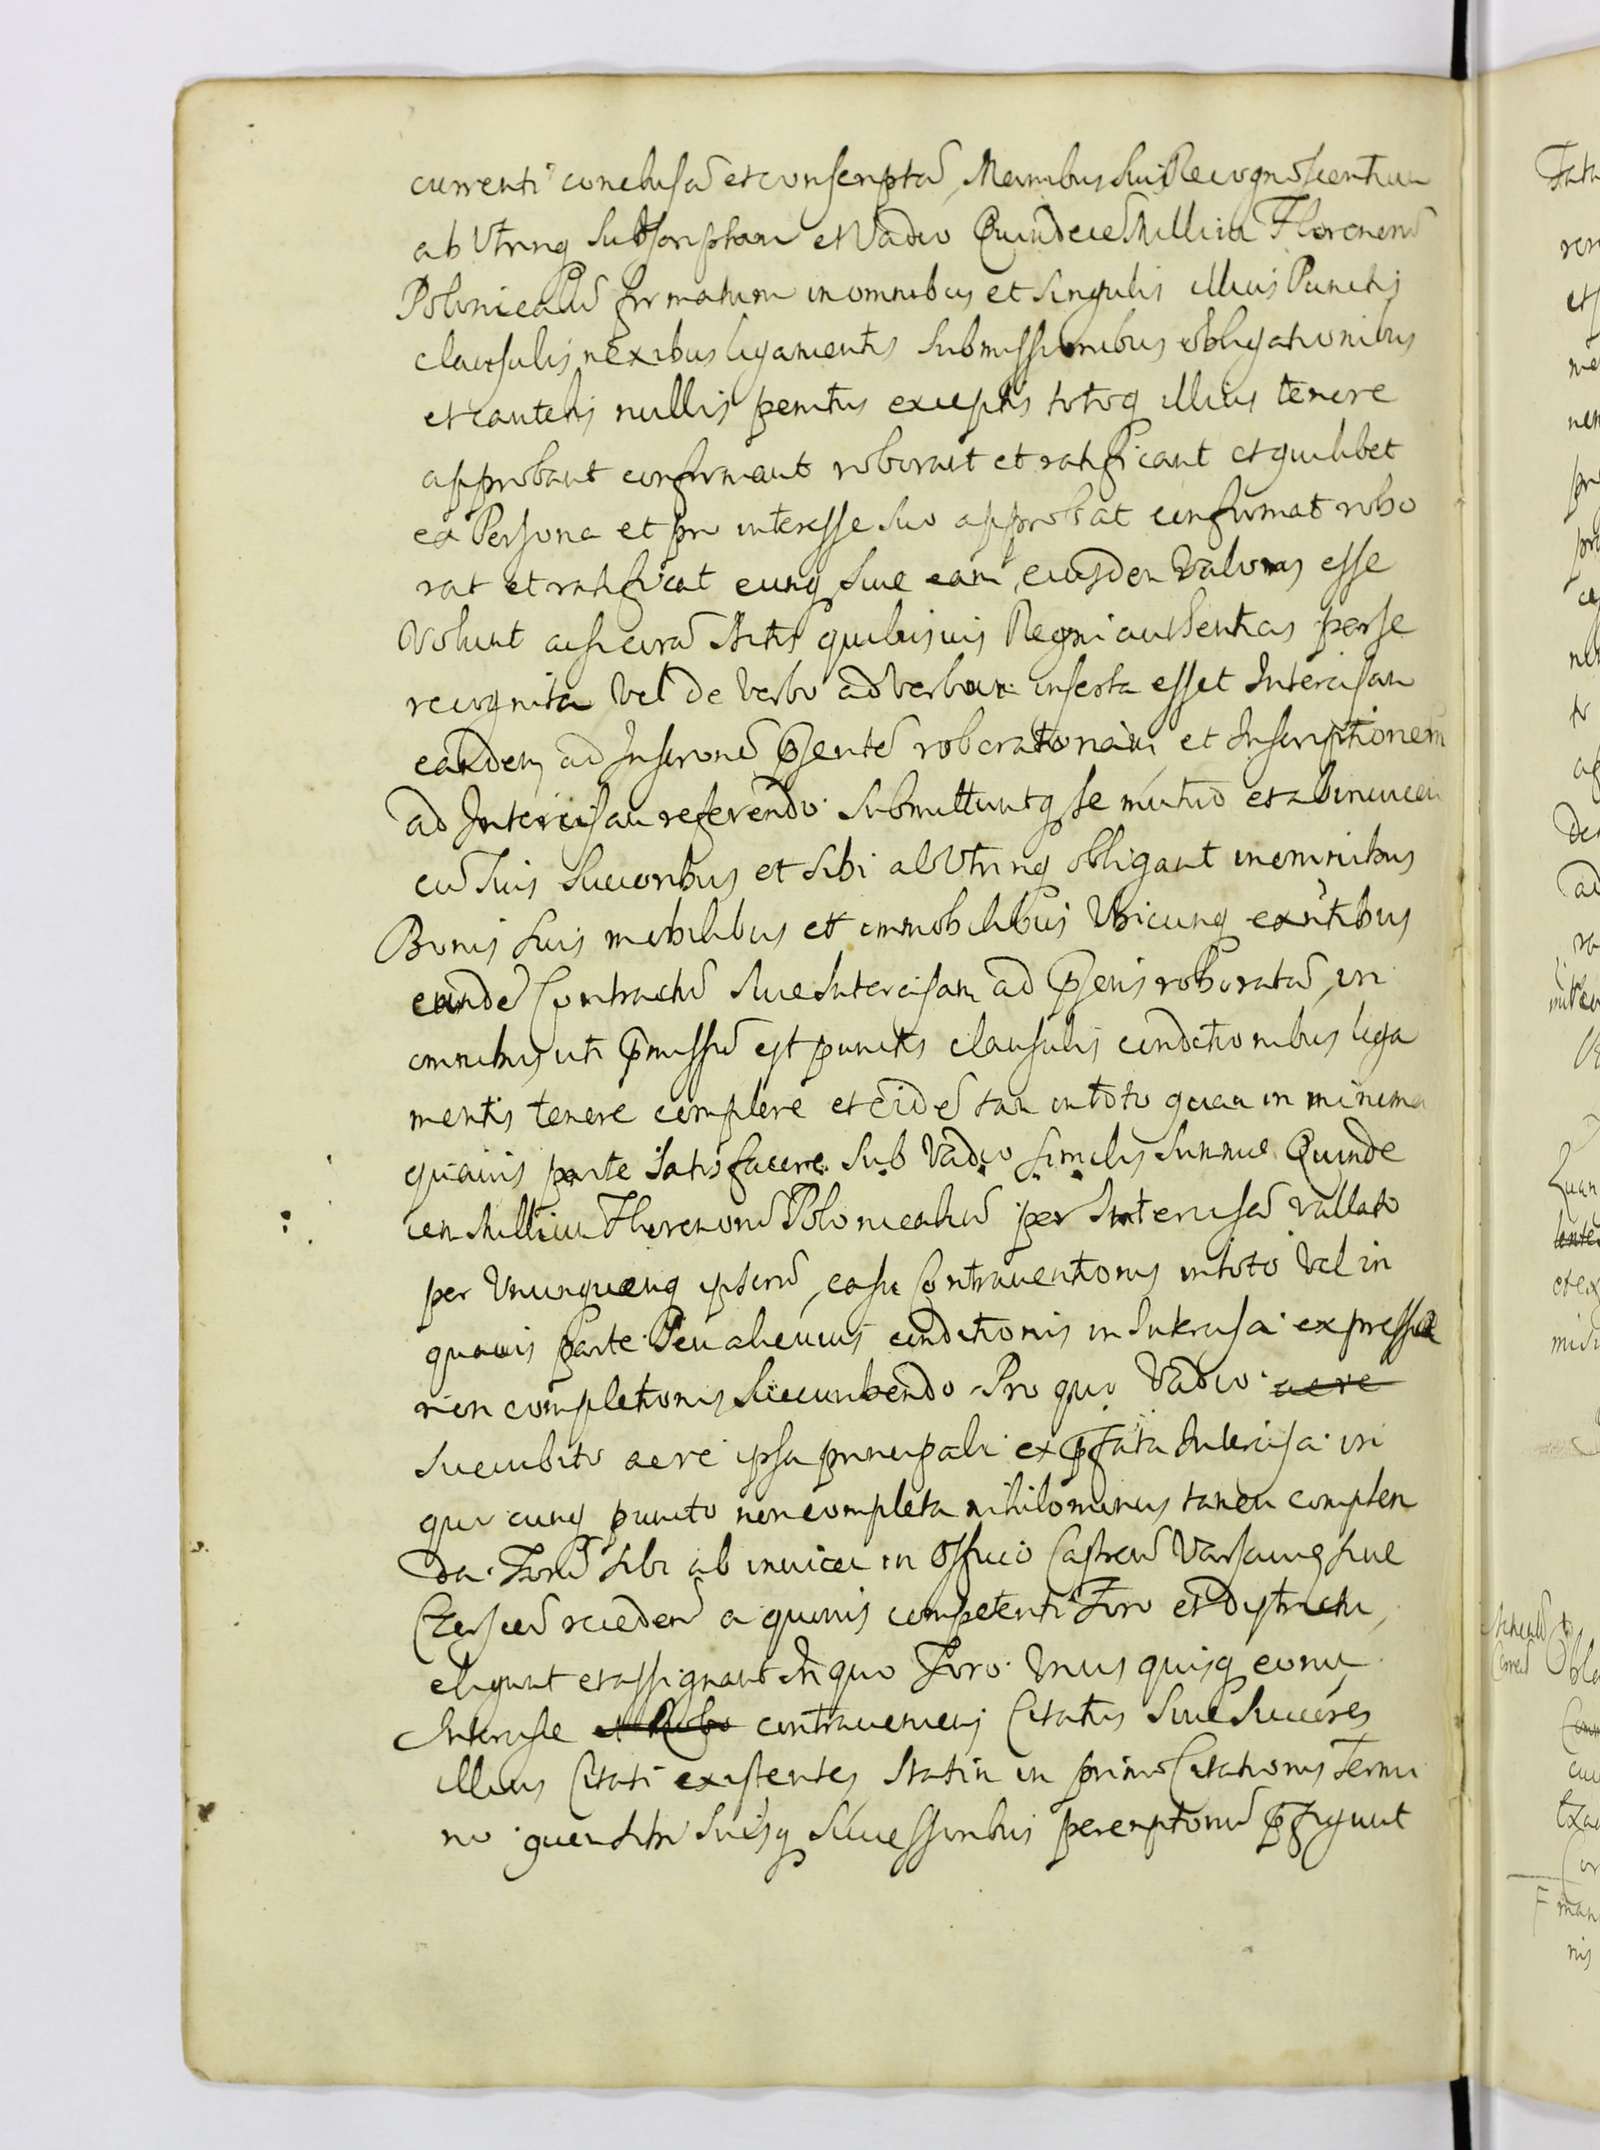 currenti conclusã et conscriptã, Manibus Suis Recognoscentium
ab Utrinq Subscriptam et Vadio Quindecẽ Milliu Florenorũ
Polonicaliũ firmatum in omnibus et Singulis illius Punctis
clausulis nexibus ligamentis Submissionibus obligationibus
et cautelis nullis penitus exceptis totoq illius tenore
approbant confirmant roborant et ratificant et quilibet
ea Persona et pro interesse Suo approbat confirmat robo
rat et ratificat eunq Siue eam eiusdem Valoris esse
Volunt acsi corã Actis quibusuis Regni authenticis per se
recognita Vel de Verbo ad Verbum inserta esset Intercisam
eandem ad Inscronẽ Pñsentẽ roboratoriam et Inscriptionem
ad Intercisam referendo Submittuntq se mutuo et ab inuicem
cũ Suis Succoribus et Sibi ab Utrinq obligant in omnibus
Bonis Suis mobilibus et immobilibus Ubicunq exñtibus
eundẽ Contractũ Siue Intercisam ad Pñsens roboratã in
omnibus uti Pmissũ est punctis clausulis conditionibus liga
mentis tenere complere et eidẽ tam in toto quam in minima
quauis parte Satisfacere Sub Vadio Similis Summæ Quinde
cem Millium Florenorũ Polonicaliũ per Intercisã Vallato
per Unumquemq ipsorũ, casu Contrauentionis in toto Vel in
quauis parte Seu alicuius conditionis in Intercisa expressæ
non completionis Succumbendo Pro quo Vadio aere
Succubito ac re ipsa principali ex Pfata Intercisa in
quocunq puncto non completa nihilominus tamen complen
da Forũ Sibi ab inuicem in Officio Castren Varsauien Siue
Czerscen recedendo a quouis competenti Foro et Districtu,
eligunt et assignant In quo Foro Unusquisq eorum
Intercisæ contraueniens Citatus Siue Succores
illius Citati existentes Statim in primo Citationis Termi
no quem Sibi Suisq Successoribus peremptoriũ Pfigunt